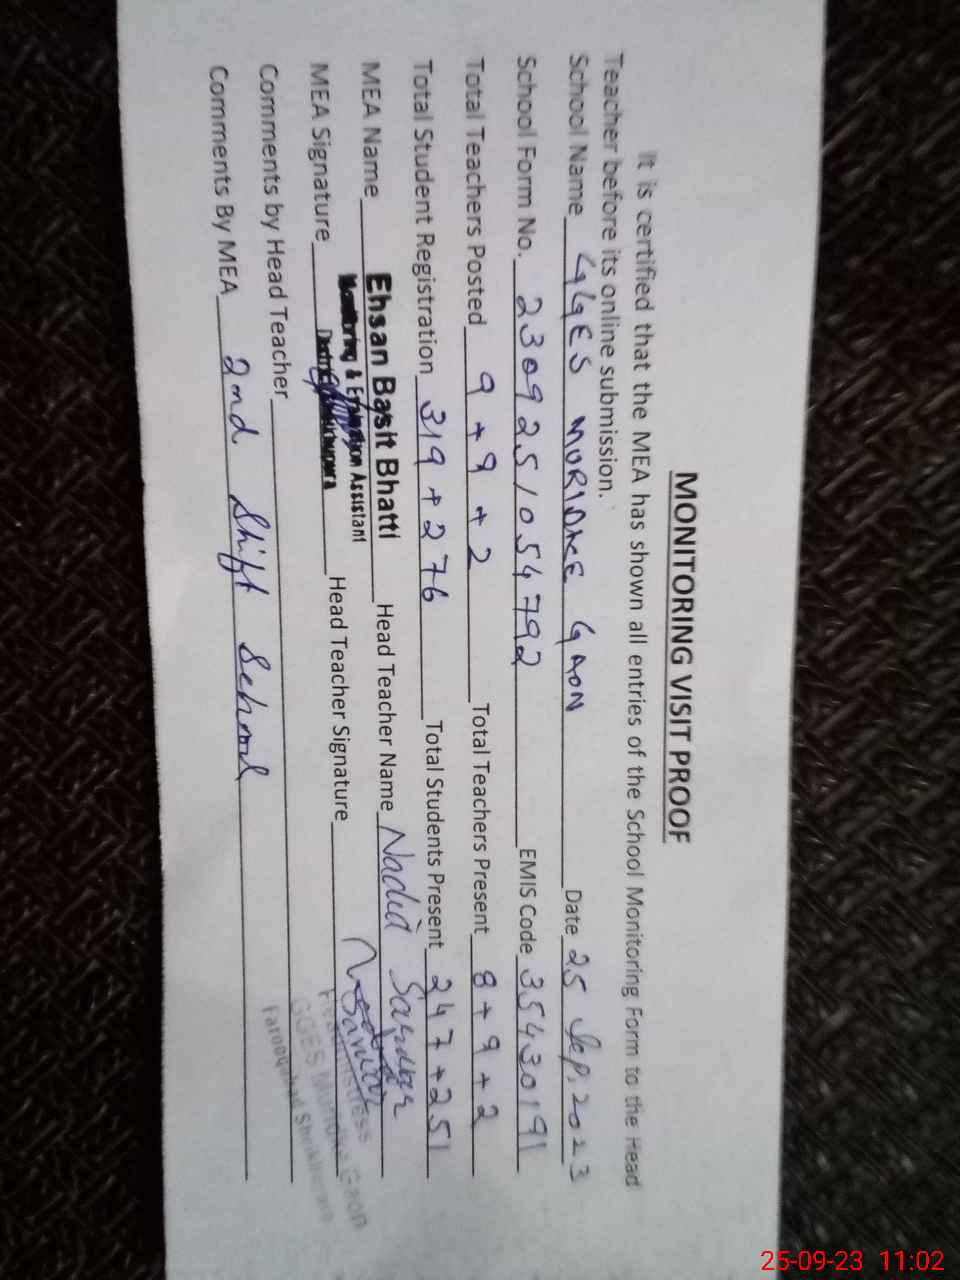 MONITORING VISIT PROOF
It is certified that the MEA has shown all entries of the School Monitoring Form to the Head
Teacher before its online submission.
School Name GGES MURIDKE GAON Date 25 Sep. 2023
School Form No. 230925/054792 EMIS Code 35430191
Total Teachers Posted 9+9+2 Total Teachers Present 8+9+2
Total Student Registration 319+276 Total Students Present 247+251
MEA Name Ehsan Basit Bhatti Head Teacher Name Nadia Sardar
Monitoring & Evaluation Assistant
MEA Signature District Head Teacher Signature
Headmistress
GGES Muridke Gaon
Farooqabad Sheikhupura
Comments by Head Teacher
Comments By MEA 2nd Shift School
25-09-23 11:02